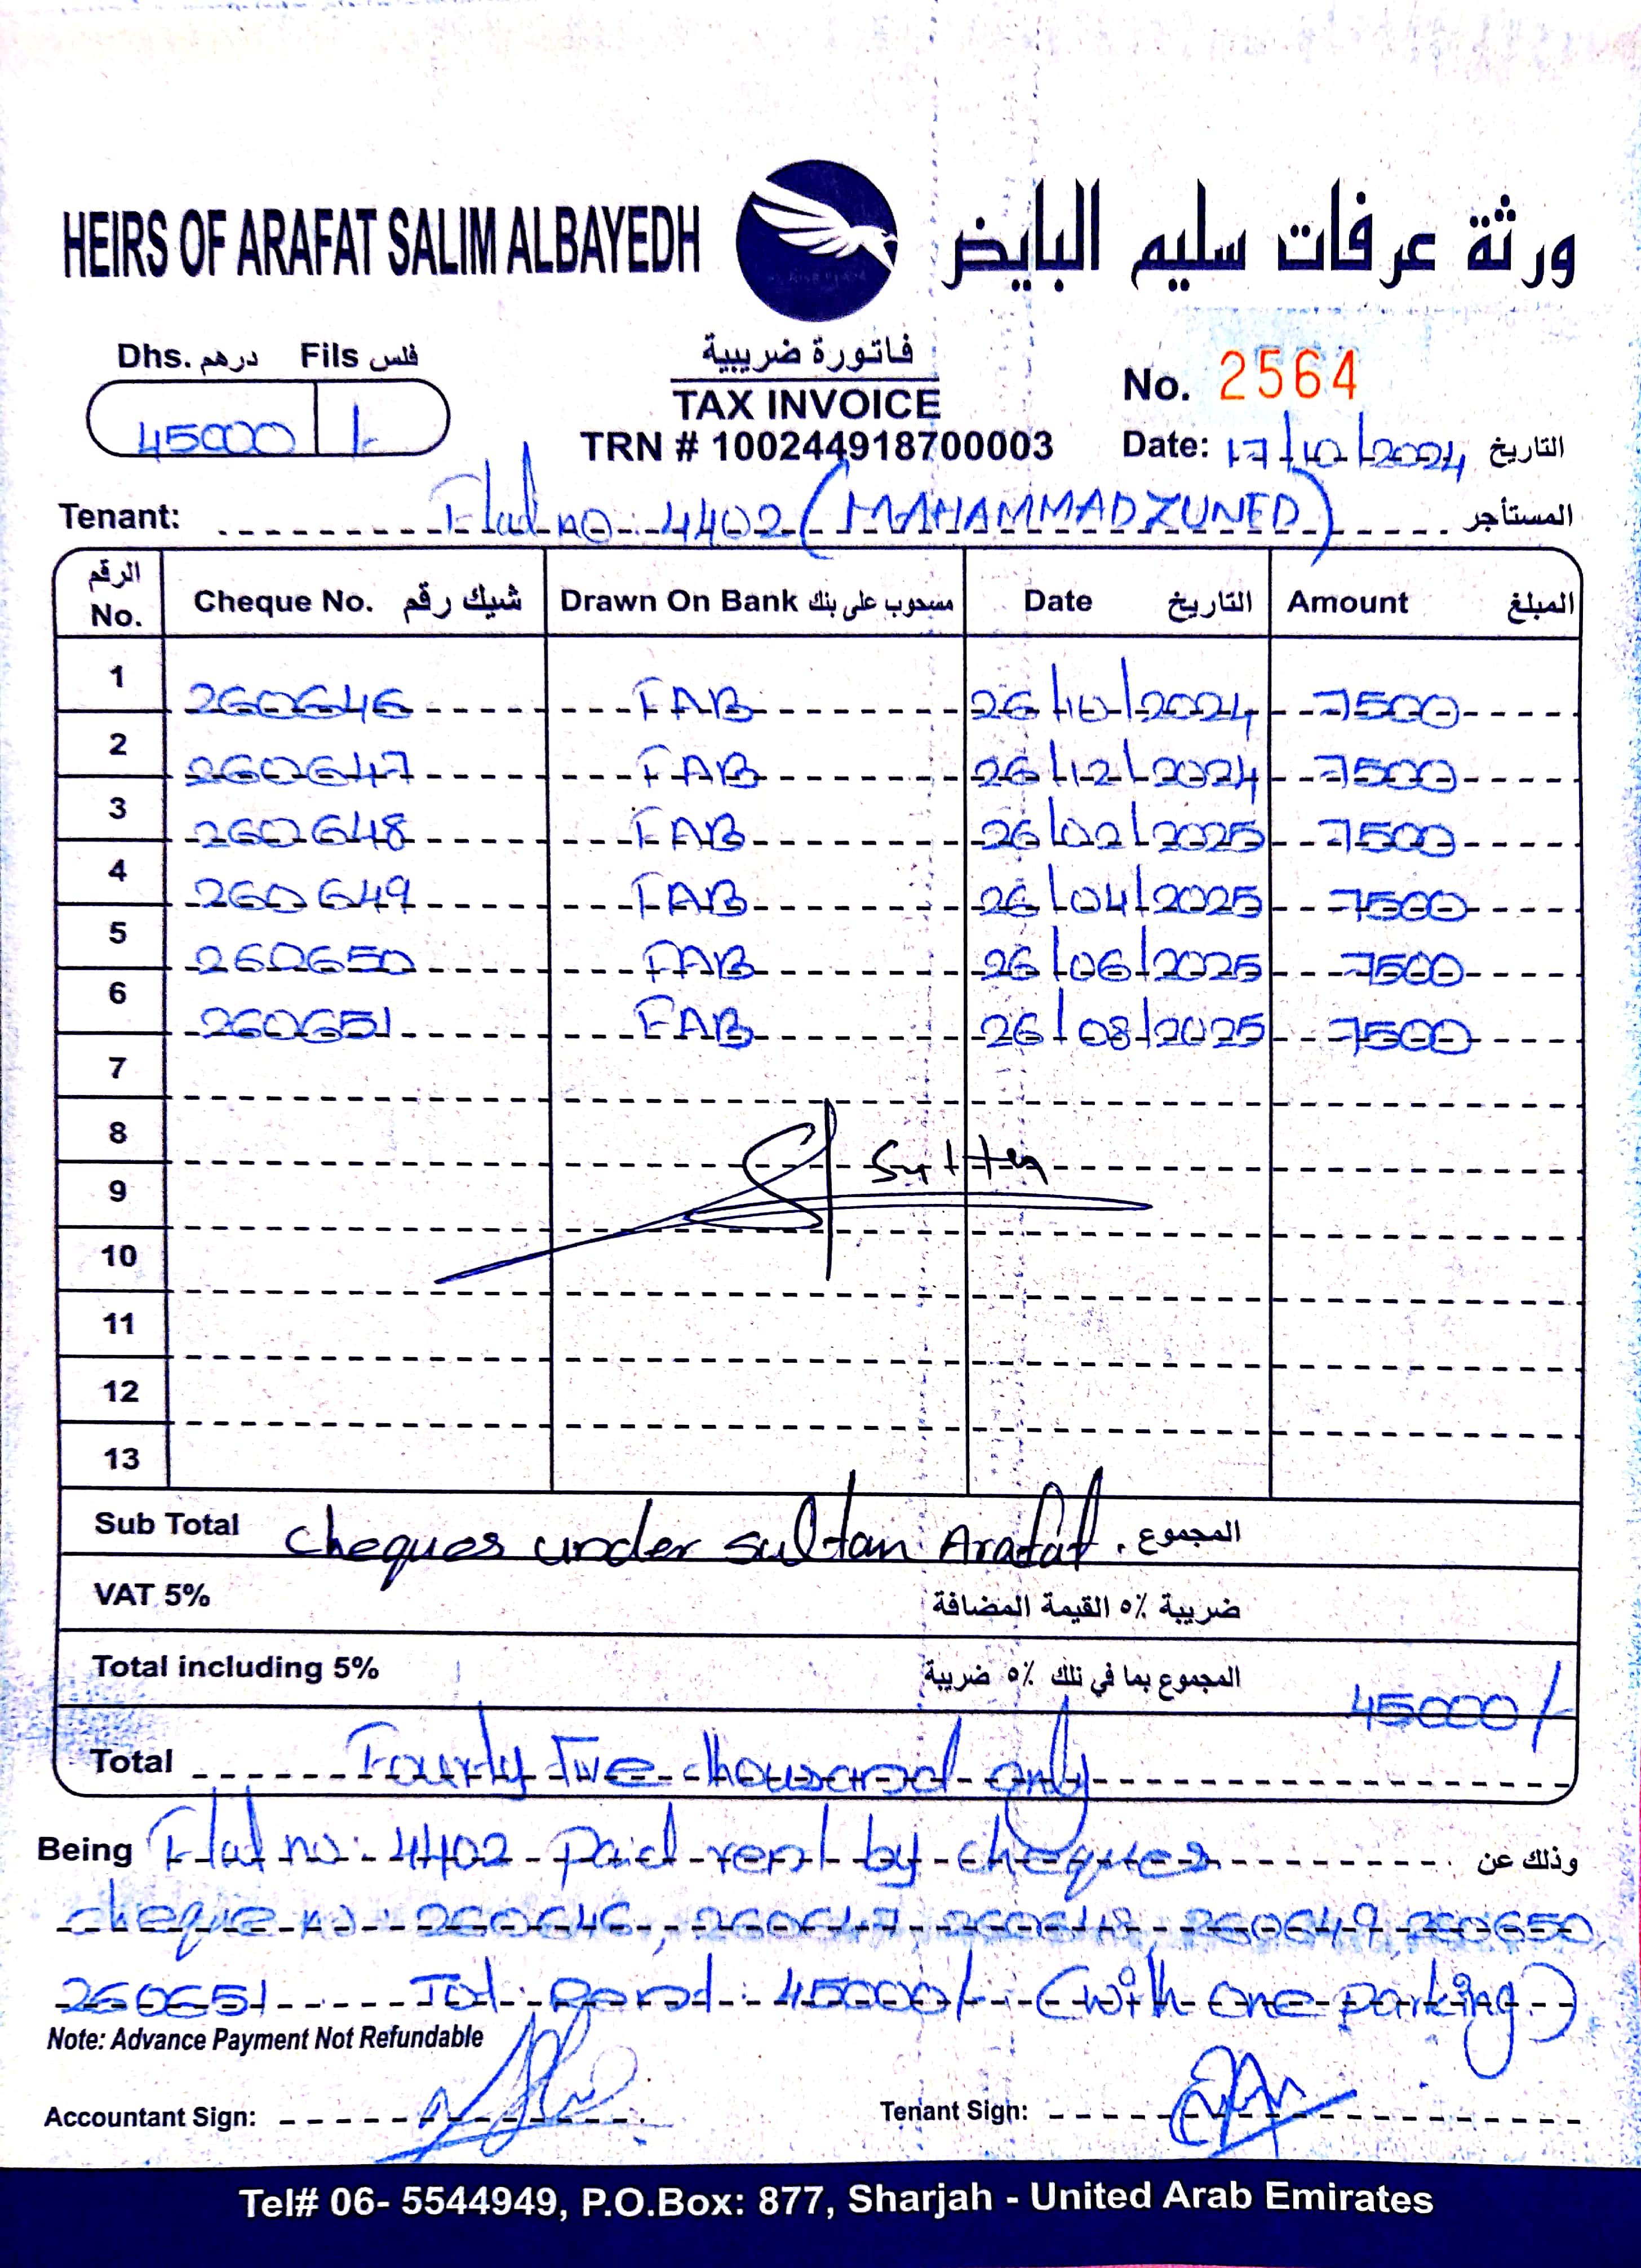 HEIRS OF ARAFAT SALIM ALBAYEDH ورثة عرفات سليم البايض
Dhs. درهم Fils فلس
45000 /-
فاتورة ضريبية
TAX INVOICE
TRN # 100244918700003
No. 2564
Date: 17/10/2024 التاريخ
Tenant: Flat no: 4402 (MAHAMMAD ZUNED) المستأجر
الرقم No. Cheque No. شيك رقم Drawn On Bank مسحوب على بنك Date التاريخ Amount المبلغ
1 260646 FAB 26/10/2024 7500
2 260647 FAB 26/12/2024 7500
3 260648 FAB 26/02/2025 7500
4 260649 FAB 26/04/2025 7500
5 260650 FAB 26/06/2025 7500
6 260651 FAB 26/08/2025 7500
7
8
9
10
11
12
13
Sub Total cheques under sultan Arafat. المجموع
VAT 5% ضريبة ٥٪ القيمة المضافة
Total including 5% المجموع بما في تلك ٥٪ ضريبة 45000/-
Total Fourty Five thousand only
Being Flat no: 4402 paid rent by cheques وذلك عن
cheque no: 260646, 260647, 260648, 260649, 260650,
260651 Tot: 45000/- (with one parking.)
Note: Advance Payment Not Refundable
Accountant Sign: Tenant Sign:
Tel# 06- 5544949, P.O.Box: 877, Sharjah - United Arab Emirates